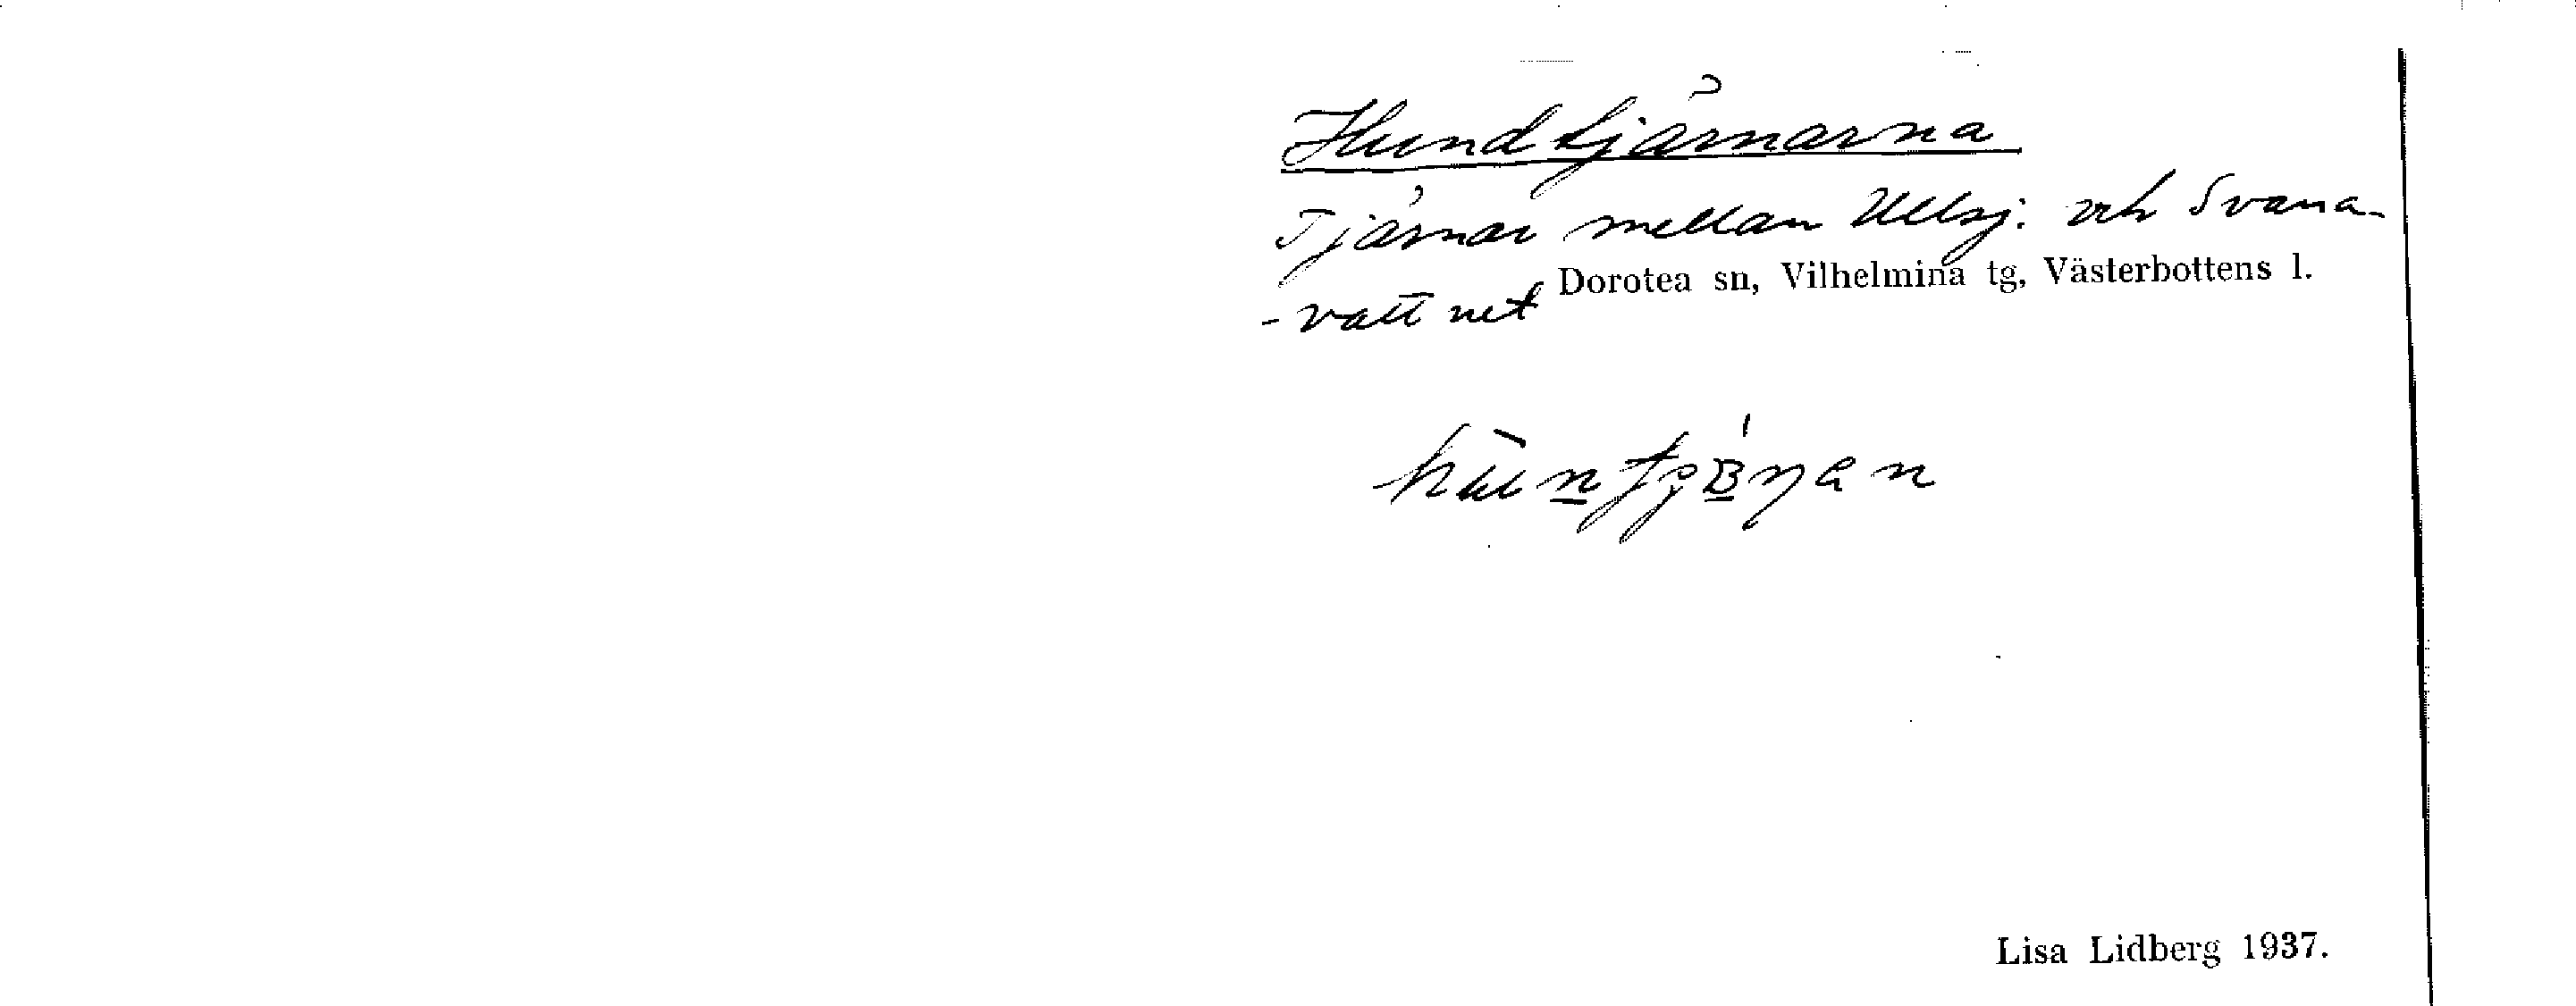 Hundtjärnarna
Tjärnar mellan Ullsj. och Svana-
Dorotea sn, Vilhelmina tg, Västerbottens l.
-vattnet
Lisa Lidberg 1937.